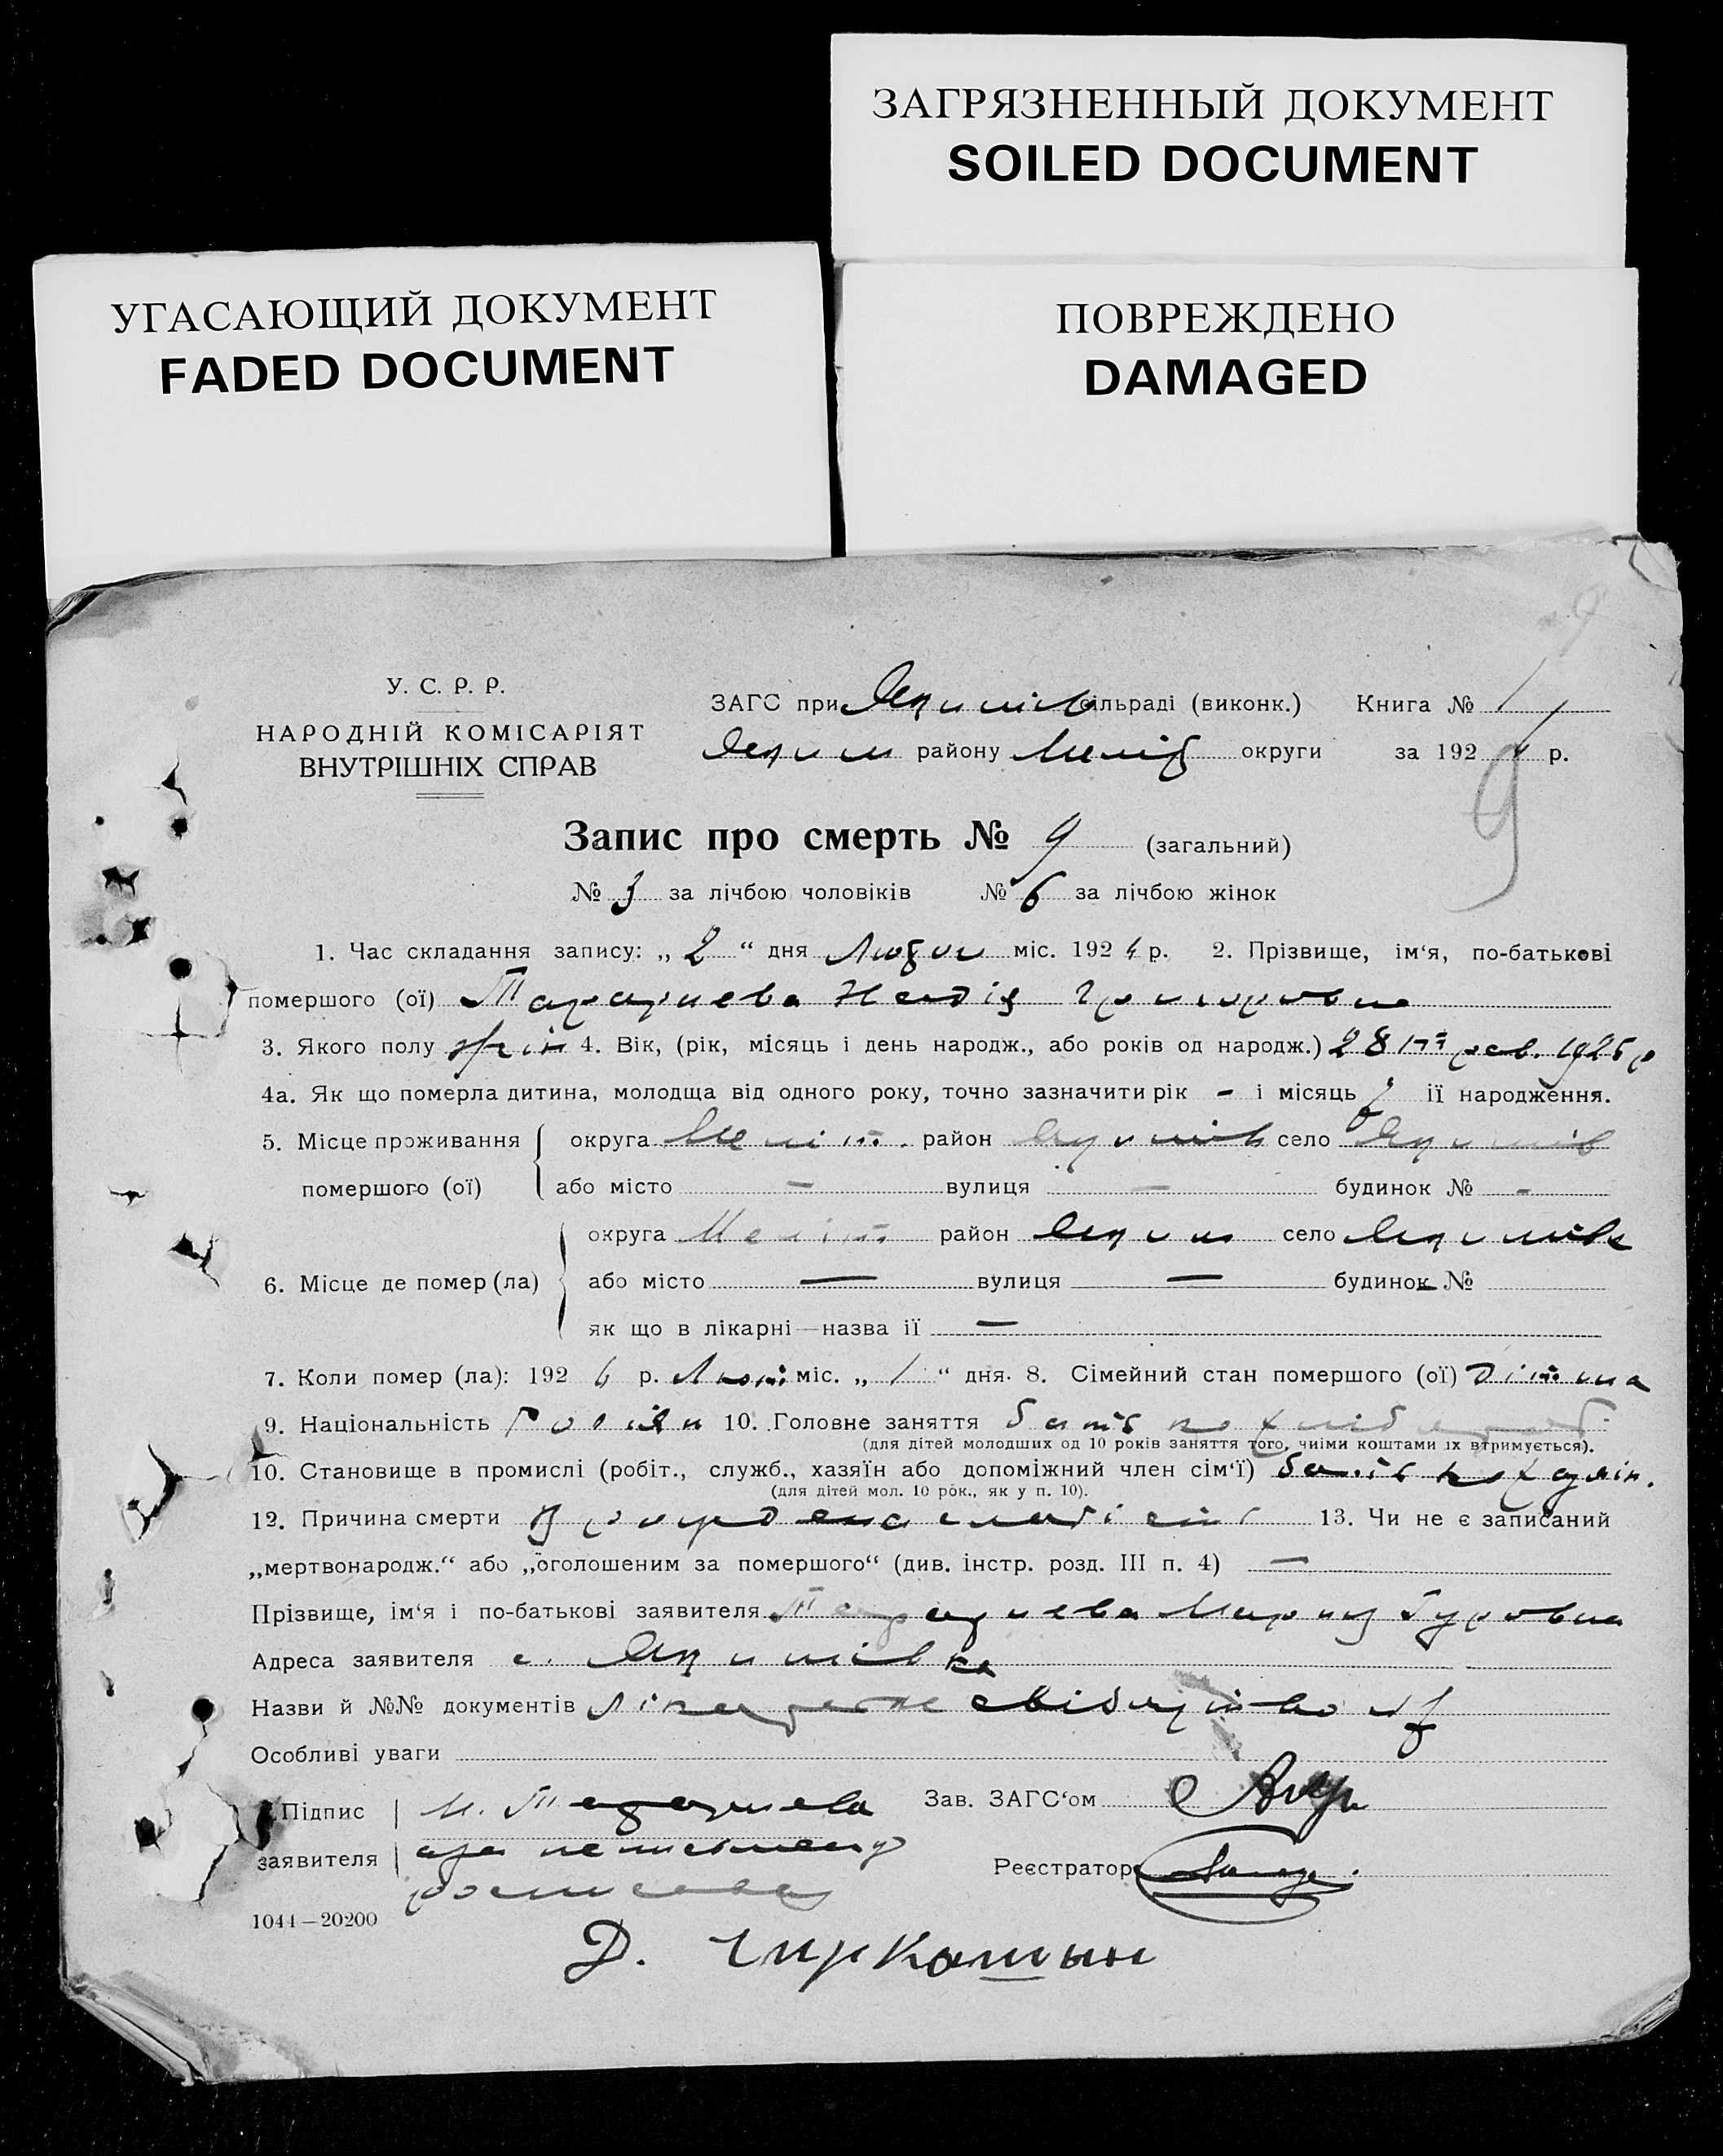 ЗАГРЯЗНЕННЫЙ ДОКУМЕНТ
SOILED DOCUMENT
УГАСАЮЩИЙ ДОКУМЕНТ
FADED DOCUMENT
ПОВРЕЖДЕНО
DAMAGED
У. С. Р. Р.
НАРОДНІЙ КОМІСАРІЯТ
ВНУТРІШНІХ СПРАВ
ЗАГС при Якимів сільраді (виконк.) Книга №
Яким району Меліт округи за 192 р.
Запис про смерть № 9 (загальний)
9
№ 3 за лічбою чоловіків № 6 за лічбою жінок
1. Час складання запису: „ 2 “ дня міс. 192 6 р. 2. Прізвище, ім‘я, по-батькові
помершого (ої) Надія Григоровна
3. Якого полу жін 4. Вік, (рік, місяць і день народж., або років од народж.) 28 1925 р
4а. Як що померла дитина, молодща від одного року, точно зазначити рік - і місяць її народження.
5. Місце проживання округа Меліт. район Якимів село Якимів
помершого (ої) або місто — вулиця — будинок № -
округа Меліт район Яким село Якимівк
6. Місце де помер (ла) або місто — вулиця — будинок №
як що в лікарні—назва її —
7. Коли помер (ла): 192 6 р. Лют міс. „ 1 “ дня. 8. Сімейний стан помершого (ої) дітина
9. Національність 10. Головне заняття батьк
(для дітей молодших од 10 років заняття того, чиіми коштами їх втримується).
10. Становище в промислі (робіт., служб., хазяїн або допоміжний член сім‘ї) батьк хазяін.
(для дітей мол. 10 рок., як у п. 10).
12. Причина смерти 13. Чи не є записаний
„мертвонародж.“ або „оголошеним за помершого“ (див. інстр. розд. III п. 4) —
Прізвище, ім‘я і по-батькові заявителя Гуровна
Адреса заявителя с. Якимівка
Назви й №№ документів
Особливі уваги
Підпис Зав. ЗАГС‘ом
заявителя Реєстратор
1044—20200
Д.